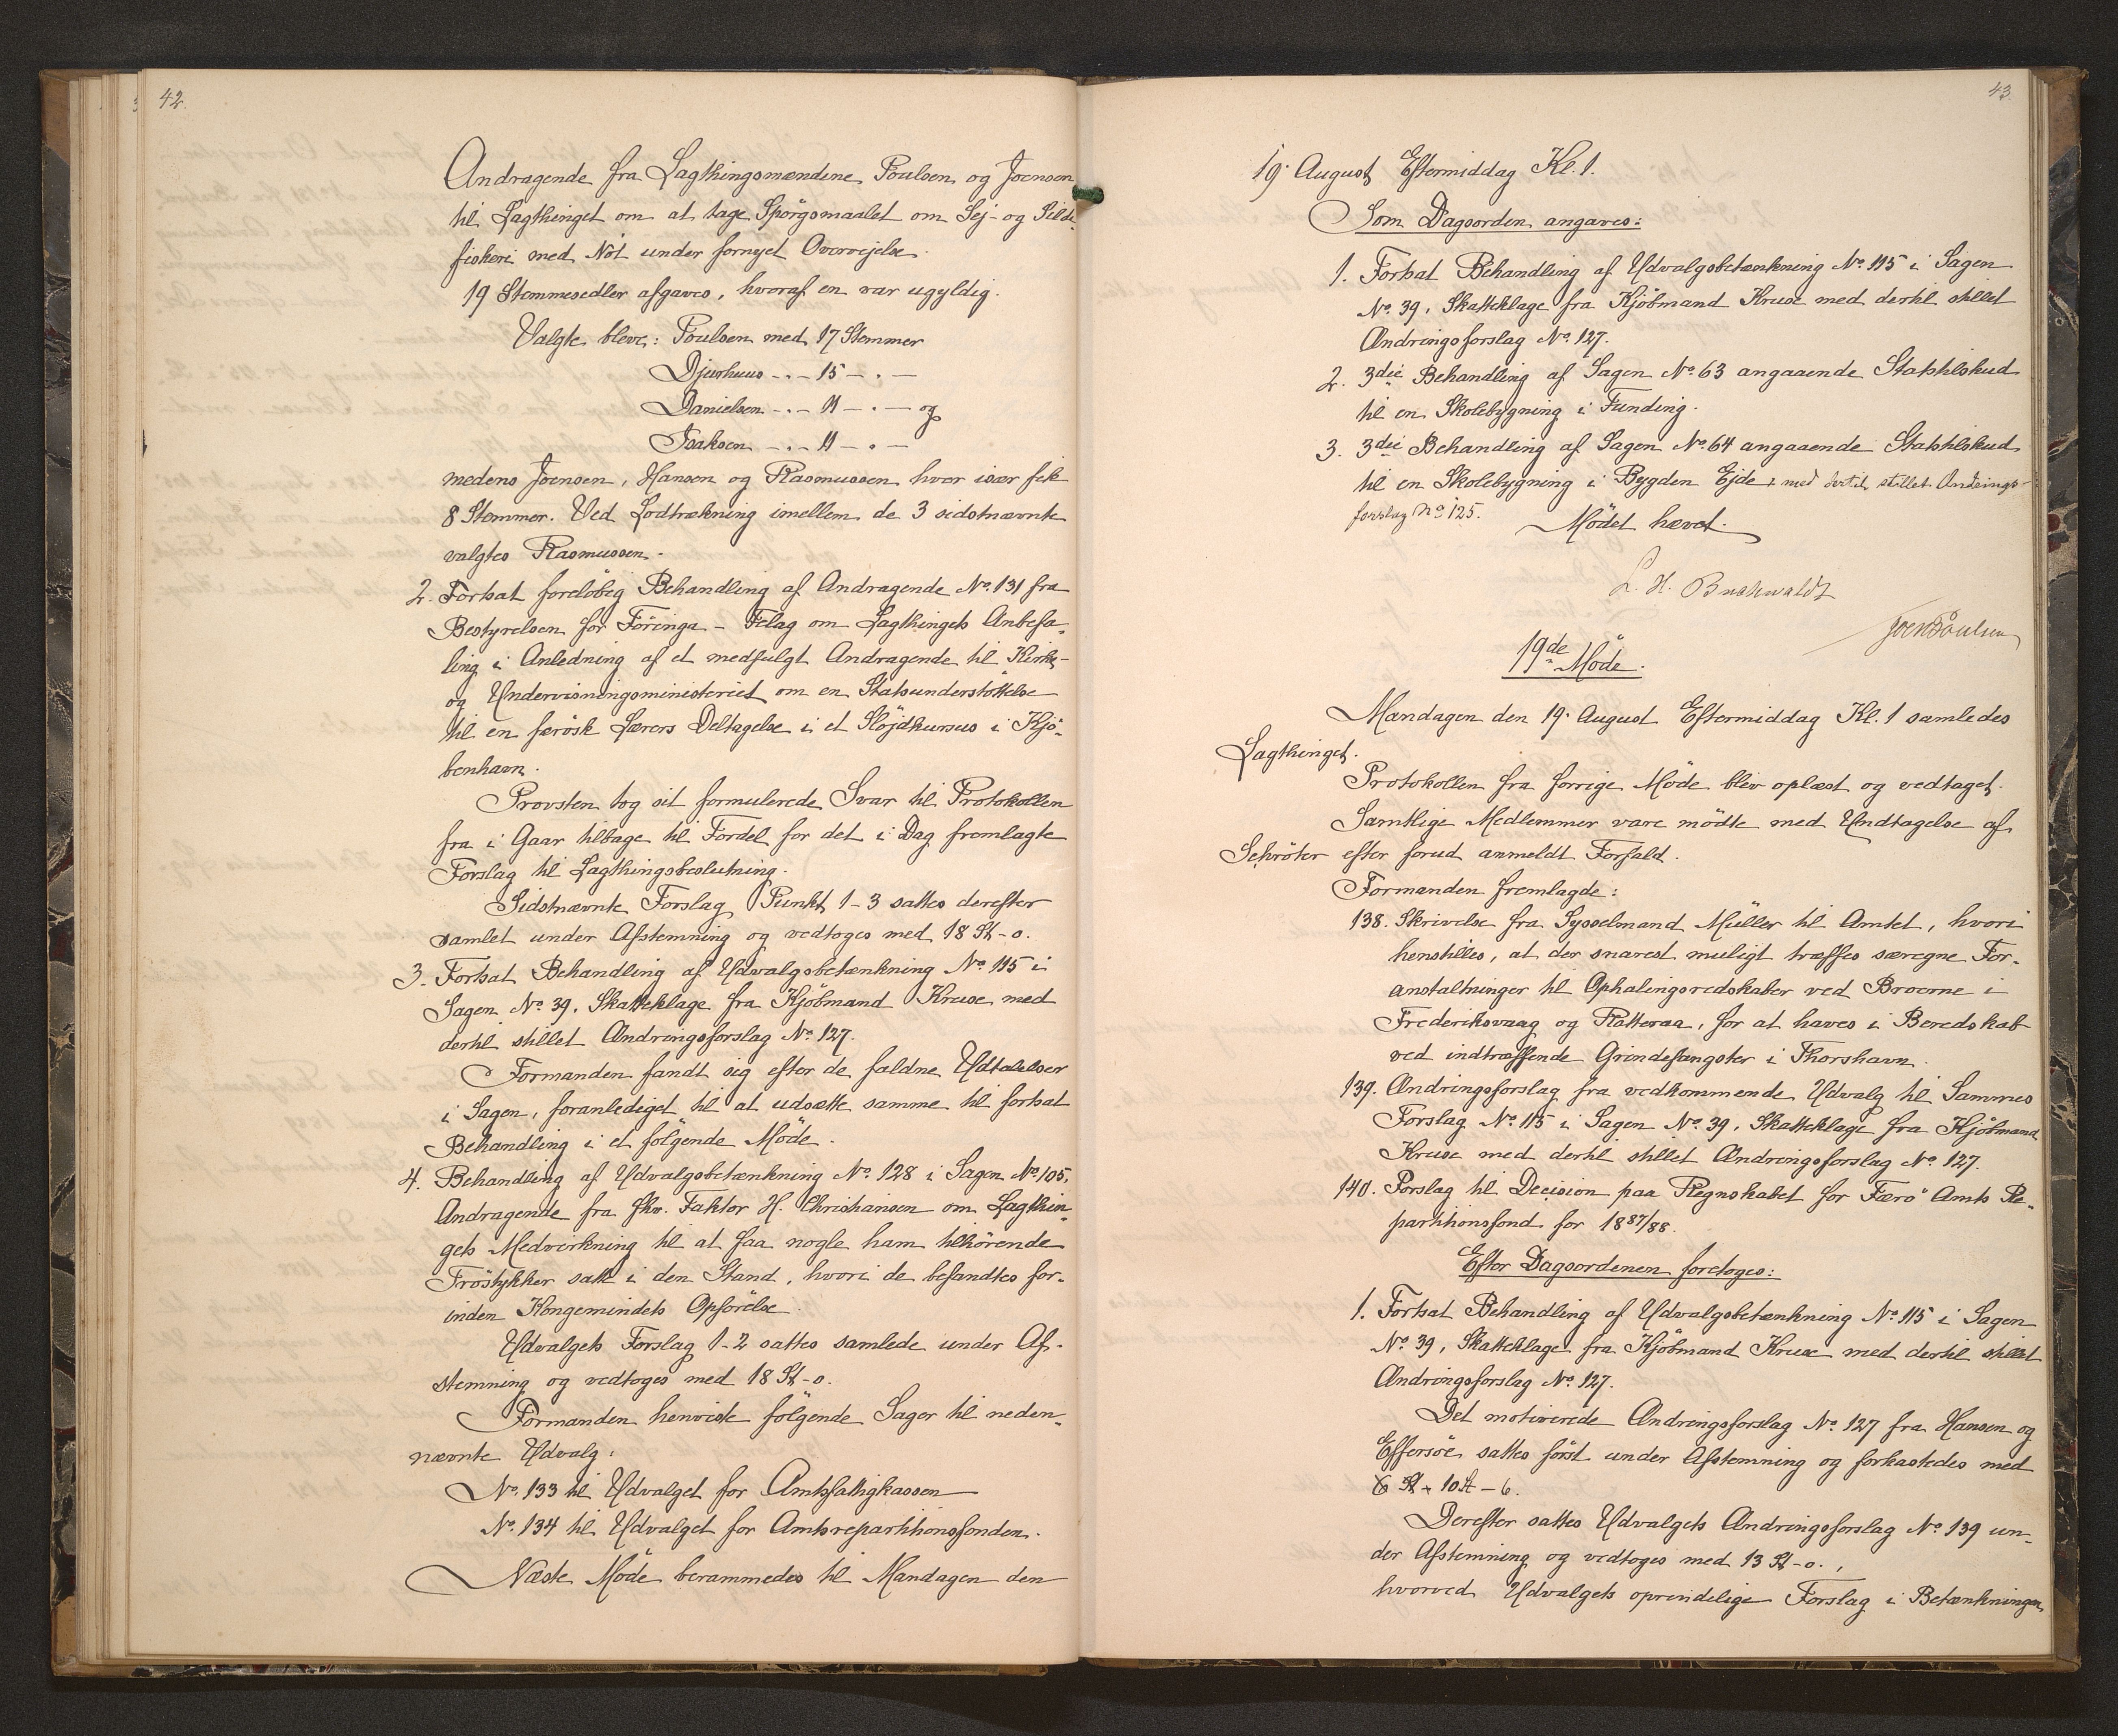 42.
Andragende fra Lagthingsmændene Poulsen og Joensen
til Lagthinget om at tage Spörgsmaalet om Sej- og Silde-
fiskeri med Nót under fornyet Overvejelse.
19 Stemmesedler afgaves, hvoraf en var ugyldig.
Valgte bleve: Poulsen med 17 Stemmer
Djurhuus -.- 15 -.-
Danielsen -.- 11 -.- og
Isaksen -.- 11 -.-
medens Joensen, Hansen og Rasmussen hver især fik
8 Stemmer. Ved Lodtrækning imellem de 3 sidstnævnte
valgtes Rasmussen.
2. Fortsat foreløbig Behandling af Andragende No. 131 fra
Bestyrelsen for Föringa-Felag om Lagthingets Anbefa-
ling i Anledning af et medfulgt Andragende til Kirke-
og Undervisningsministeriet om en Statsunderstöttelse
til en færösk Lærers Deltagelse i et Slöjdkursus i Kjö-
benhavn.
Provsten tog sit formulerede Svar til Protokollen
fra i Gaar tilbage til Fordel for det i Dag fremlagte
Forslag til Lagthingsbeslutning.
Sidstnævnte Forslag Punkt 1-3 sattes derefter
samlet under Afstemning og vedtoges med 18 St-0.
3. Fortsat Behandling af Udvalgsbetænkning No. 115 i
Sagen No. 39, Skatteklage fra Kjöbmand Kruse med
dertil stillet Ændringsforslag No. 127.
Formanden fandt sig efter de faldne Udtalelser
i Sagen, foranlediget til at udsætte samme til fortsat
Behandling i et fölgende Möde.
4. Behandling af Udvalgsbetænkning No. 128 i Sagen No. 105,
Andragende fra fhv. Faktor H. Christiansen om Lagthin-
gets Medvirkning til at faa nogle ham tilhörende
Tröstykker satte i den Stand, hvori de befandtes for-
inden Kongemindets Opförelse.
Udvalgets Forslag 1-2 sattes samlede under Af-
stemning og vedtoges med 18 St-0.
Formanden henviste fölgende Sager til neden-
nævnte Udvalg:
No. 133 til Udvalget for Amtsfattigkassen
No. 134 til Udvalget for Amtsrepartitionsfonden.
Næste Möde berammedes til Mandagen den
43.
19. August Eftermiddag Kl. 1.
Som Dagsorden angaves:
1. Fortsat Behandling af Udvalgsbetænkning No. 115 i Sagen
No. 39, Skatteklage fra Kjöbmand Kruse med dertil stillet
Ændringsforslag No. 127.
2. 3die Behandling af Sagen No. 63 angaaende Statstilskud
til en Skolebygning i Funding.
3. 3die Behandling af Sagen No. 64 angaaende Statstilskud
til en Skolebygning i Bygden Ejde, med dertil stillet Ændrings-
forslag No 125.
Mödet hævet.
L. H. Buchwaldt
Joen Poulsen
19de Möde.
Mandagen den 19. August Eftermiddag Kl. 1 samledes
Lagthinget.
Protokollen fra forrige Möde blev oplæst og vedtaget.
Samtlige Medlemmer vare mödte med Undtagelse af
Schröter efter forud anmeldt Forfald.
Formanden fremlagde:
138. Skrivelse fra Sysselmand Müller til Amtet, hvori
henstilles, at der snarest muligt træffes særegne For-
anstaltninger til Ophalingsredskaber ved Broerne i
Frederiksvaag og Ratteraa, for at haves i Beredskab
ved indtræffende Grindefangster i Thorshavn.
139. Ændringsforslag fra vedkommende Udvalg til Sammes
Forslag No. 115 i Sagen No. 39, Skatteklage fra Kjöbmand
Kruse med dertil stillet Ændringsforslag No. 127.
140. Forslag til Decision paa Regnskabet for Færö Amts Re-
partitionsfond for 1887/88.
Efter Dagsordenen foretoges:
1. Fortsat Behandling af Udvalgsbetænkning No. 115 i Sagen
No. 39, Skatteklage fra Kjöbmand Kruse med dertil stillet
Ændringsforslag No. 127.
Det motiverede Ændringsforslag No. 127 fra Hansen og
Effersöe sattes först under Afstemning og forkastedes med
10 St - 6.
Derefter sattes Udvalgets Ændringsforslag No. 139 un-
der Afstemning og vedtoges med 13 St-0.,
hvorved Udvalgets oprindelige Forslag i Betænkningen